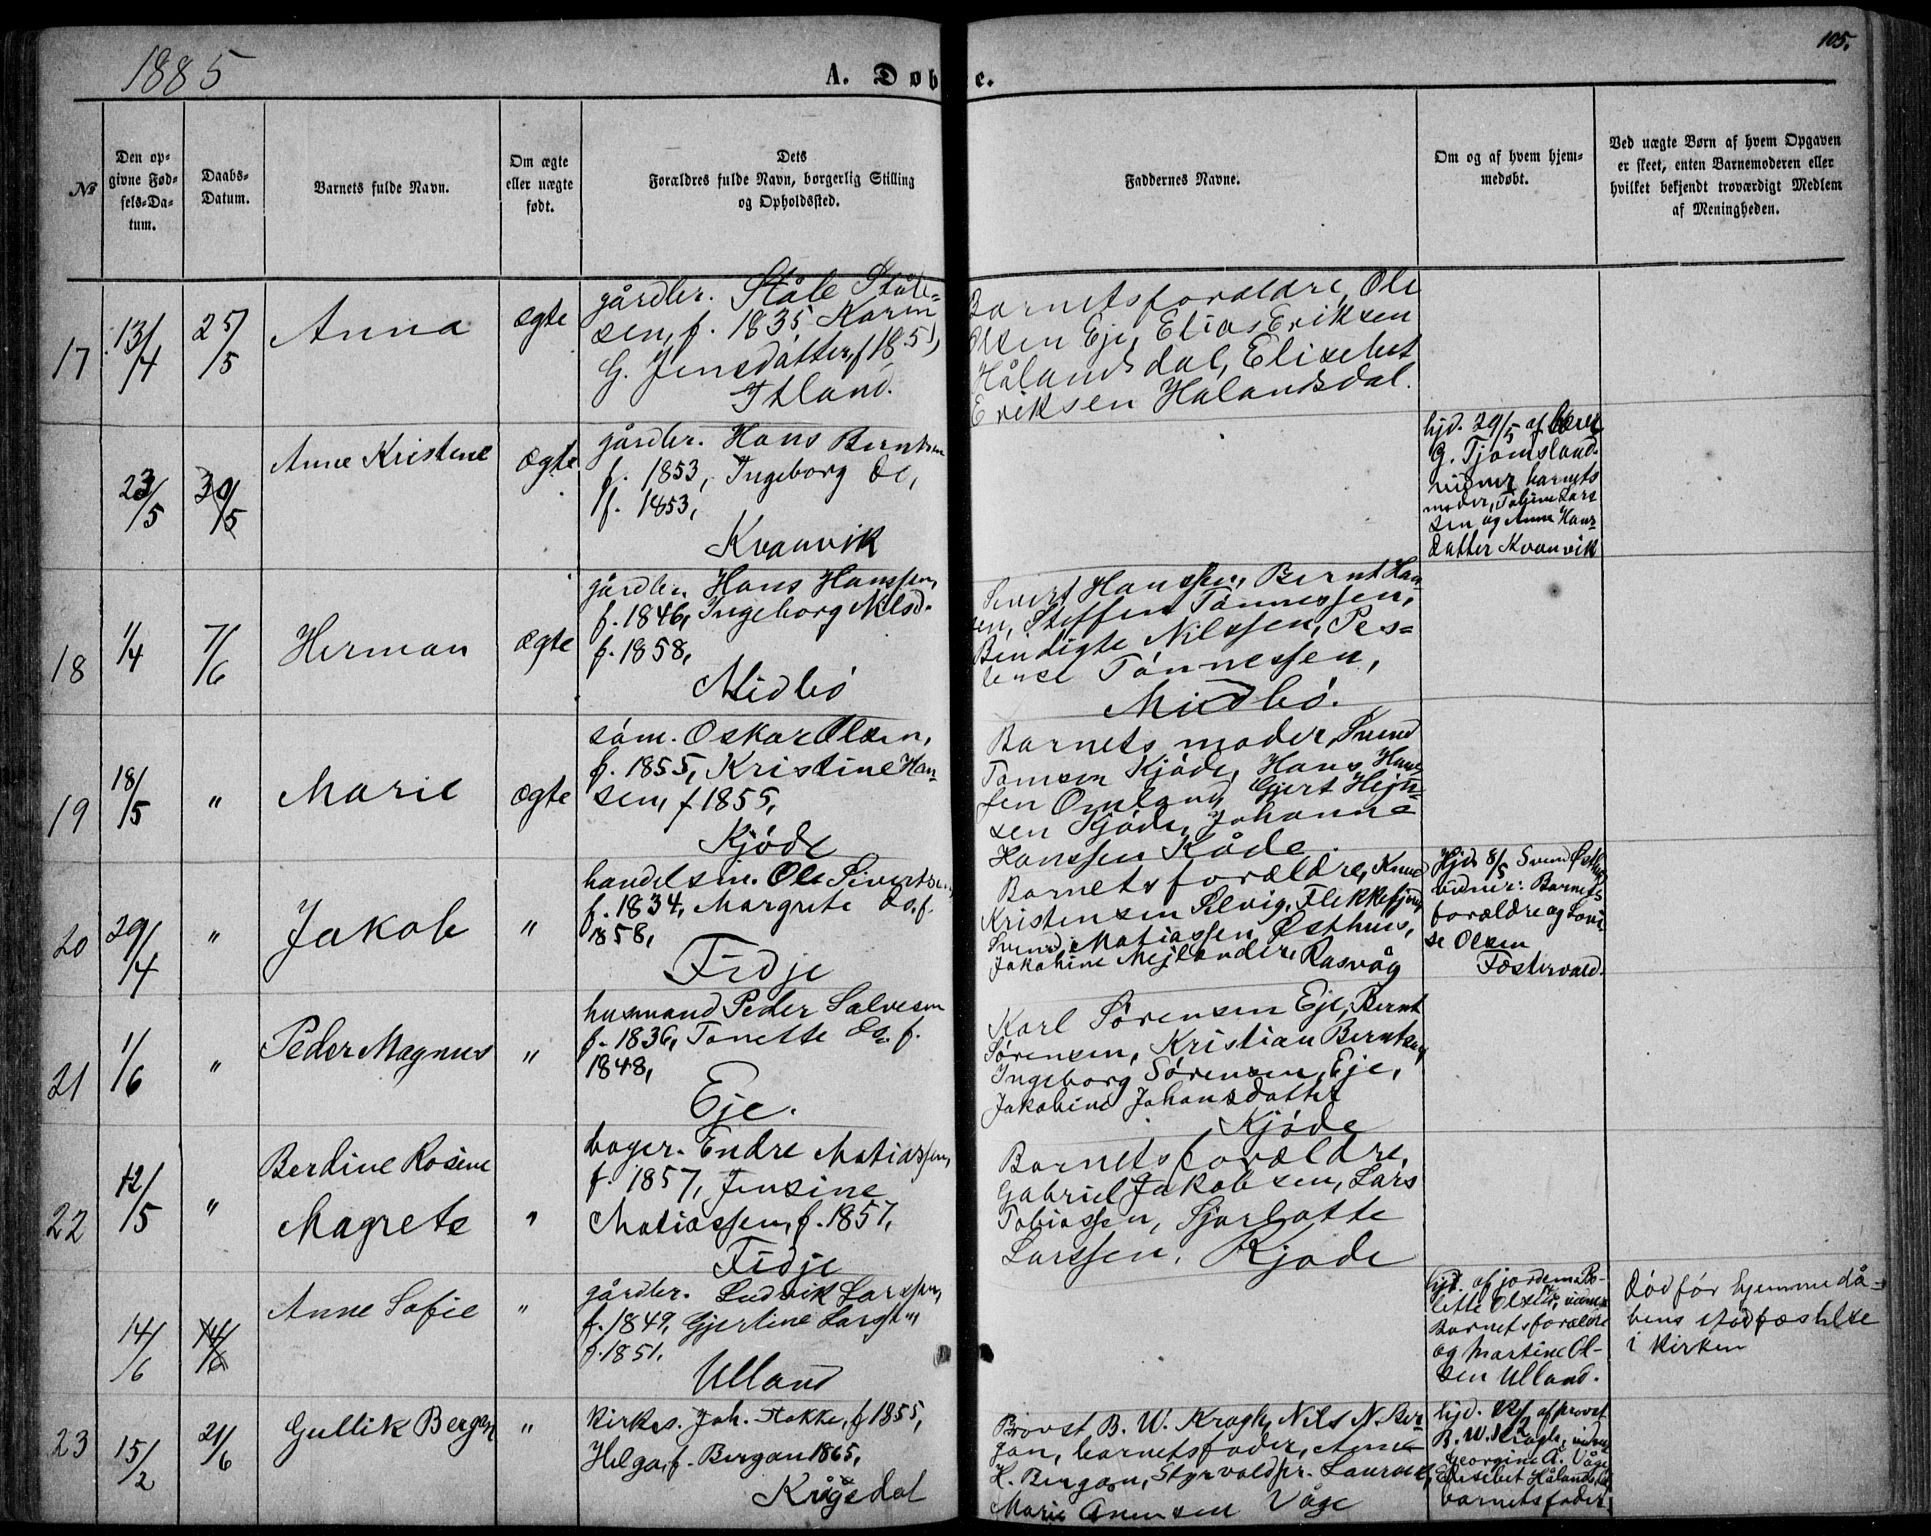 1885
A. Døbte.
105.
№
Den op-
givne Fød-
sels-Da-
tum.
Daabs-
Datum.
Barnets fulde Navn.
Om ægte
eller uægte
født.
Dets
Forældres fulde Navn, borgerlig Stilling
og Opholdssted.
Faddernes Navne.
Om og af hvem hjem-
medøbt.
Ved uægte Børn af hvem Opgaven
er skeet, enten Barnemoderen eller
hvilket bekjendt troværdigt Medlem
af Meningheden.
17
13/4
25/5
Anna
ægte
gårdbr. Ståle Ståle-
sen, f. 1835 Karen
G. Jensdatter, f 1851,
Itland.
Barnets forældre, Ole
Olsen Eje, Elias Eriksen
Hålandsdal, Elisebet
Eriksen Hålandsdal.
23/5
30/5
Anne Kristene
ægte
gårdbr. Hans Berntsen
f. 1853, Ingeborg do,
f. 1853,
Kvanvik
hjd. 29/5 af lærer
G. Tjomsland.
vidner barnets
moder, Tobine Lars
sen og Anne Hans-
datter Kvanvik
18
1/4
7/6
Herman
ægte
gårdbr. Hans Hanssen,
f. 1846, Ingeborg Nilsd.
f. 1858,
Midbø
Sivert Hanssen, Bernt Han
sen, Steffen Tønnessen,
Bendigte Nilssen, Pes-
lense Tønnessen,
Midbø.
19
18/5
"
Marie
ægte
søm. Oskar Olsen,
f. 1855, Kristine Han-
sen, f 1855,
Kjøde
Barnets moder, Svend
Tomsen Kjøde, Hans Han-
sen Omland, Gjert Hejn-
sen Kjøde, Johanne
Hanssen Kåde.
20
29/4
"
Jakob
"
handelsm. Ole Sivertsen,
f. 1834, Margrete do. f.
1858,
Fidje
Barnets forældre, Knud
Kristensen Selvig, Flekkefjord
Svend Matiassen Østhus,
Jakobine Mejlænder, Rasvåg
Hjd 8/5 Svend Østhus
vidner: Barnets
forældre og Lovi
se Olsen
Fostervold.
21
1/6
"
Peder Magnus
"
husmand Peder Salvesen
f. 1836, Tonette do. f.
1848,
Eje.
Karl Sørensen Eje, Bernt
Sørensen, Kristian Berntsen,
Ingeborg Sørensen, Eje,
Jakobine Johansdatter
Kjøde
22
12/5
"
Berdine Rosine
Magrete
"
bager. Endre Matiassen,
f. 1857, Jensine
Matiassen, f. 1857,
Fidje
Barnets forældre,
Gabriel Jakobsen, Lars
Tobiassen, Sjarlotte
Larssen, Kjøde
14/6
14/6
Anne Sofie
"
gårdbr. Ludvik Larssen,
f. 1849, Gjertine Larss "
f. 1851.
Ulland
hjd. af jordem. Bo-
lette Olsen, vidner
Barnets forældre
og Martine Ol-
sen Ulland.
død før hjemmedå-
bens stadfæstelse
i kirken
23
15/2
21/6
Gullik Bergan
"
kirkes. Joh. Stokke, f 1855,
Helga, f. Bergan 1865,
Krågedal
Provst B. W. Krogh, Nils N. Ber-
gan, barnets fader, Anne
K. Bergan, Styrvoldpr. Laurant,
Marie Anensen Våge
hjd. af provst
B. W. Krogh, vidner
Georgine A. Våge,
Elisebet Hålandsdal
barnets fader.